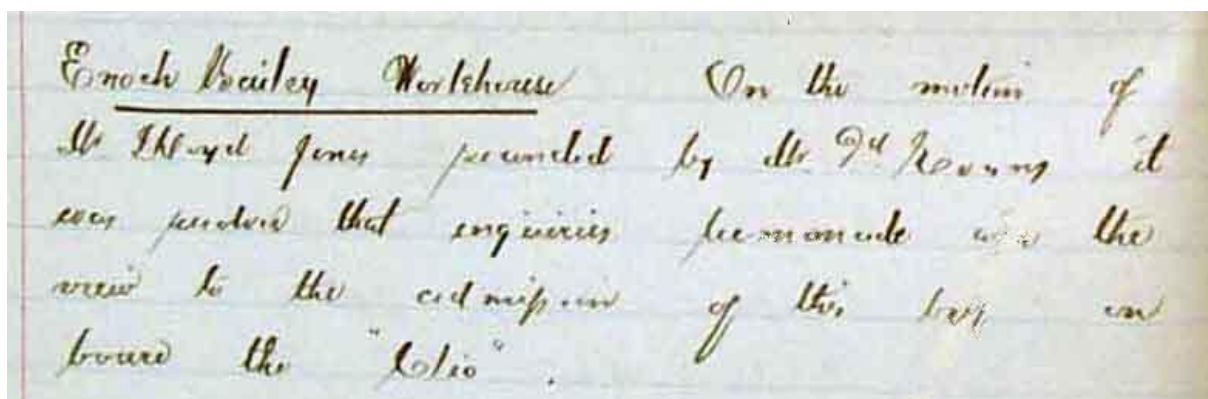 Enoch Bailey Workhouse On the motion of
Mr Lloyd Jones seconded by Mr it
was resolved that enquiries be made the
view to the admission of this boy on
board the "Clio".